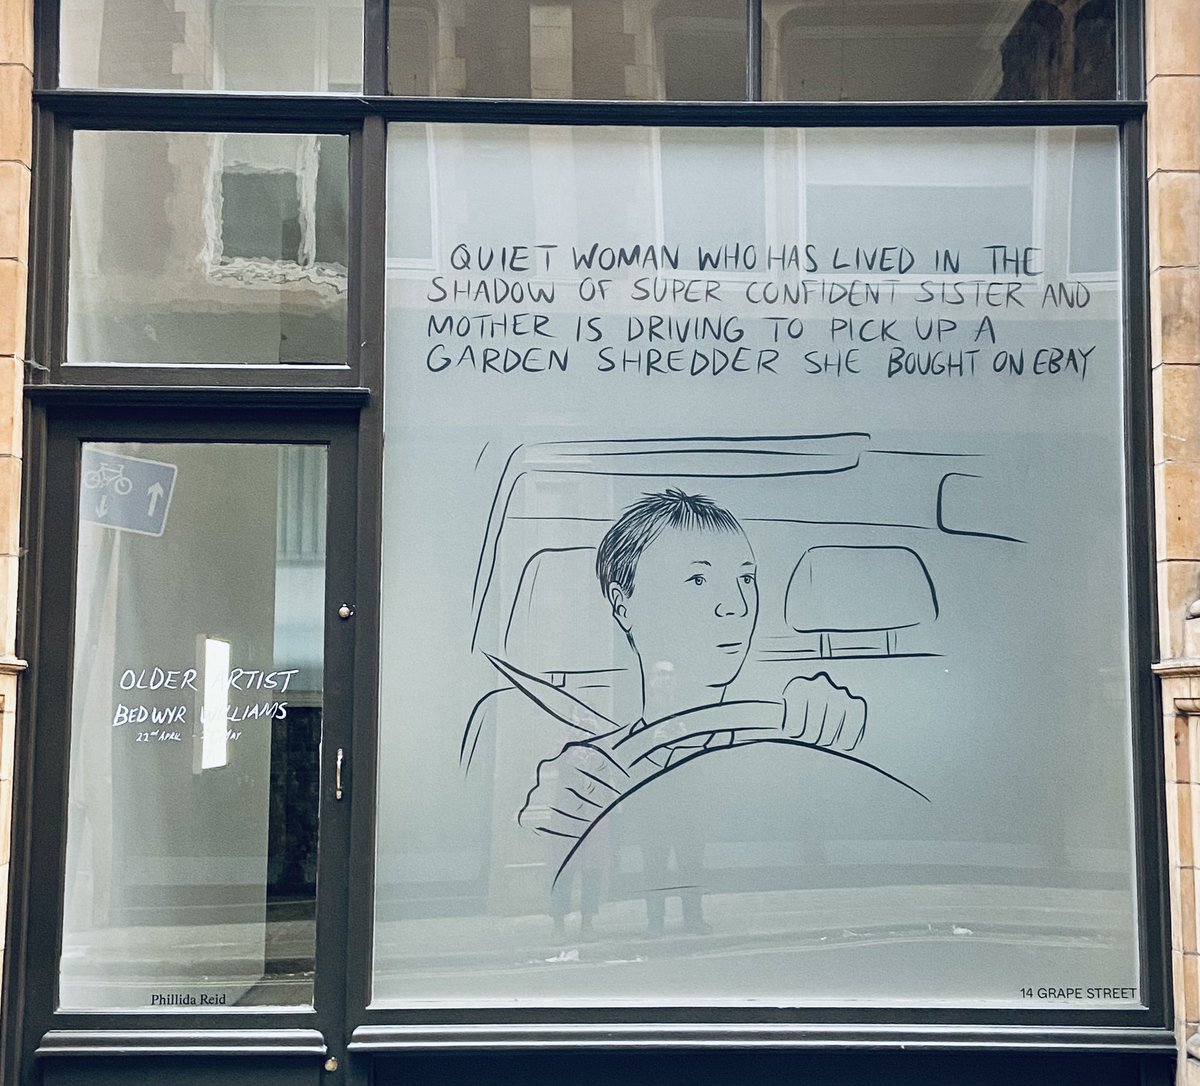 QUIET WOMAN WHO HAS LIVED IN THE
SHADOW OF SUPER CONFIDENT SISTER AND
MOTHER IS DRIVING TO PICK UP A
GARDEN SHREDDER SHE BOUGHT ON EBAY
OLDER ARTIST
BEDWYR WILLIAMS
22nd APRIL - MAY
Phillida Reid
14 GRAPE STREET